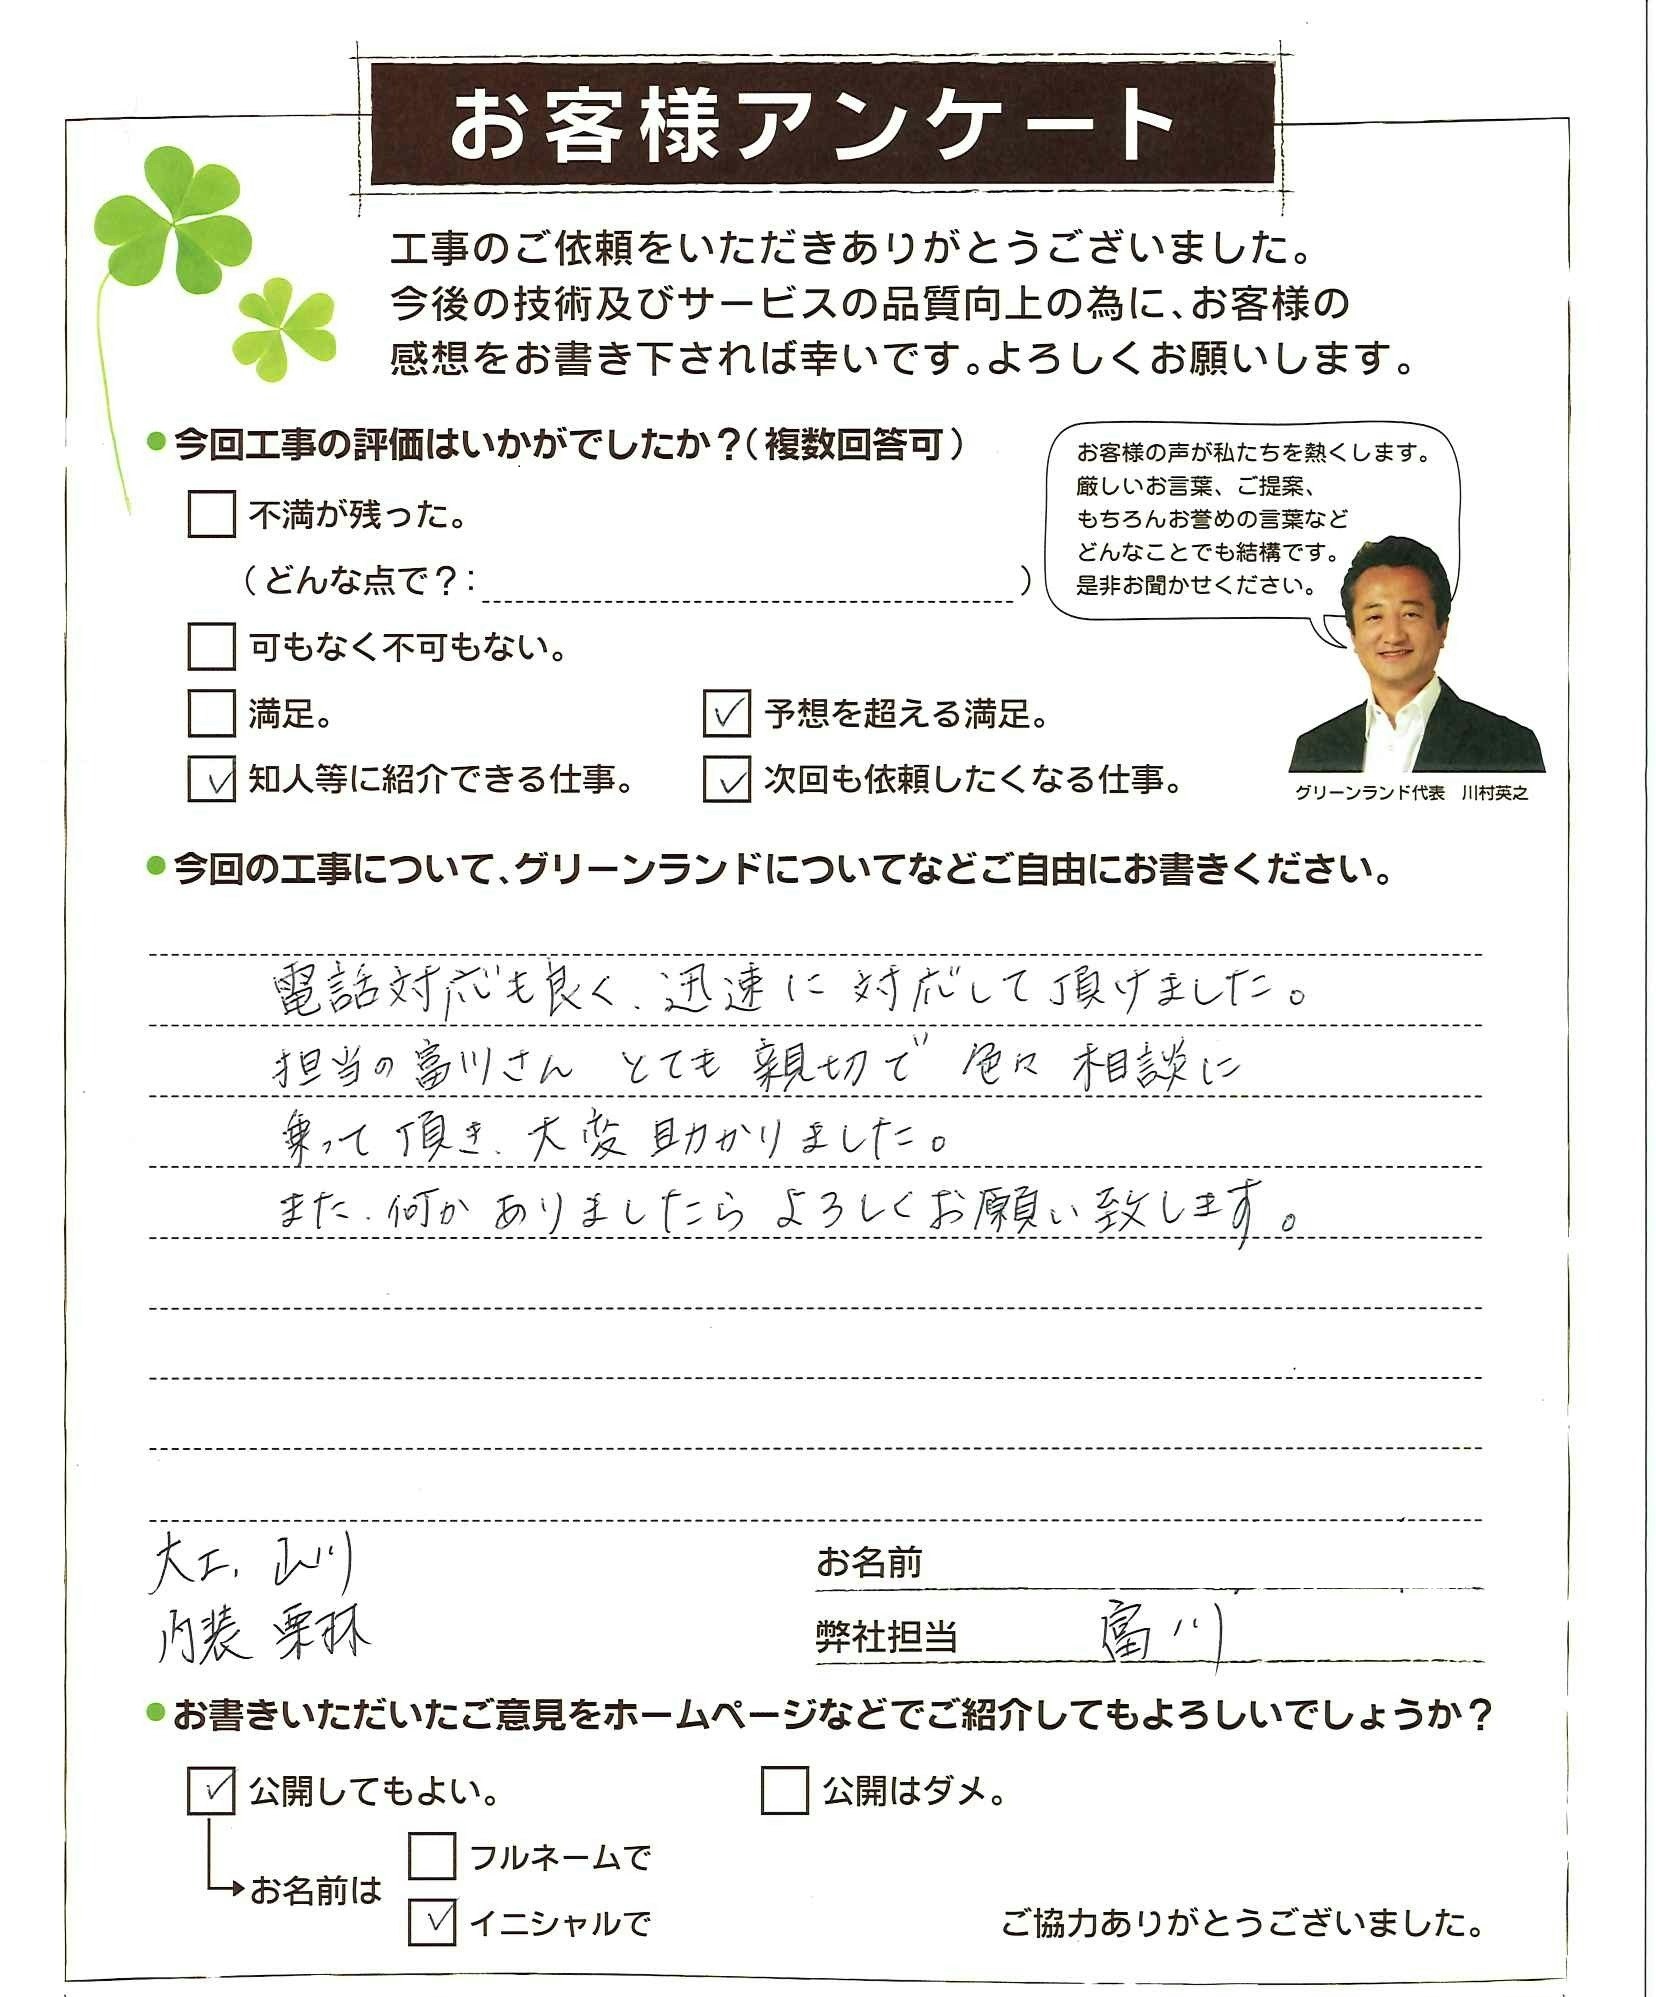 お客様アンケート
工事のご依頼をいただきありがとうございました。
今後の技術及びサービスの品質向上の為に、お客様の
感想をお書き下されば幸いです。よろしくお願いします。
●今回工事の評価はいかがでしたか?(複数回答可)
不満が残った。
(どんな点で?: )
可もなく不可もない。
満足。
予想を超える満足。
知人等に紹介できる仕事。
次回も依頼したくなる仕事。
お客様の声が私たちを熱くします。
厳しいお言葉、ご提案、
もちろんお誉めの言葉など
どんなことでも結構です。
是非お聞かせください。
グリーンランド代表 川村英之
●今回の工事について、グリーンランドについてなどご自由にお書きください。
電話対応も良く、迅速に対応して頂けました。
担当の富川さん とても親切で 色々 相談に
乗って頂き、大変助かりました。
また、何かありましたらよろしくお願い致します。
大工、山川
内装 栗林
お名前
弊社担当 富川
●お書きいただいたご意見をホームページなどでご紹介してもよろしいでしょうか?
公開してもよい。
公開はダメ。
お名前は
フルネームで
イニシャルで
ご協力ありがとうございました。